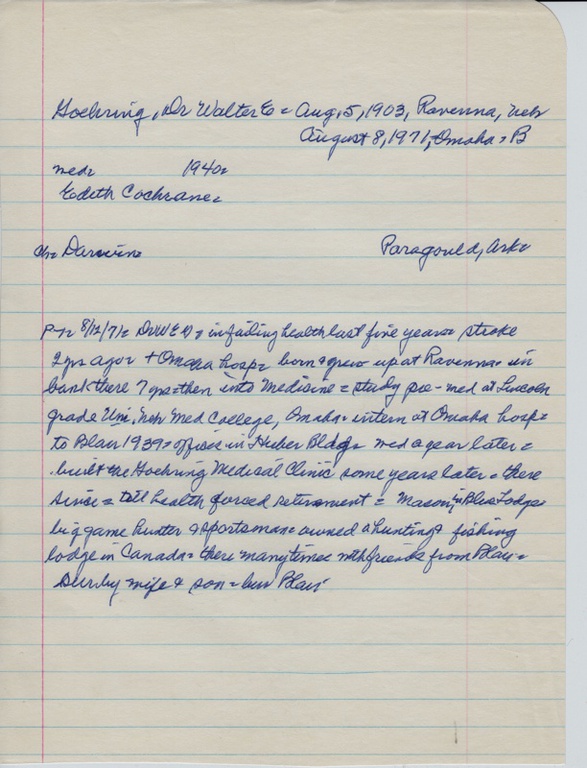 Goehring, Dr Walter E = Aug, 5, 1903, Ravenna, Neb
August 8, 1971, Omaha = B
med= 1940=
Edith Cochrane=
ch= Darwin= Paragould, Ark=
P-T= 8/12/71= Dr W E G, in failing health last five years= stroke
2 yrs ago= + Omaha hosp= born & grew up at Ravenna= in
bank there 7 yrs= then into Medicine= study pre-med at Lincoln
grade Uni. Neb Med College, Omaha= intern at Omaha hosp=
to Blair 1939= offices in Huber Bldg= med a year later=
built the Goehring Medical Clinic some years later= there
since= till health forced retirement= Mason, in Blue Lodge=
big game hunter & sportsman= owned a hunting & fishing
lodge in Canada= there many times with friends from Blair=
Surv by wife & son= bur Blair